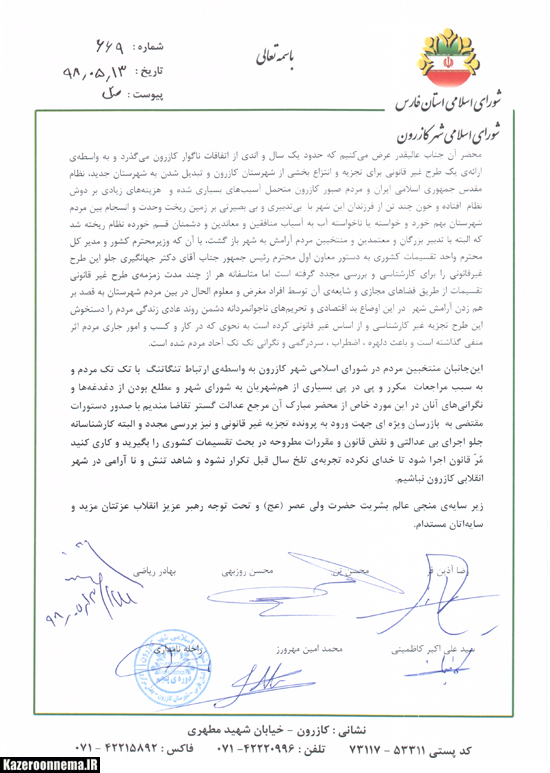 باسمه تعالی
شماره : ۶۶۹
تاریخ : ۹۸,۰۵,۱۳
پیوست :
شورای اسلامی استان فارس
شورای اسلامی شهر کازرون
محضر آن جناب عالیقدر عرض می‌کنیم که حدود یک سال و اندی از اتفاقات ناگوار کازرون می‌گذرد و به واسطه‌ی
ارائه‌ی یک طرح غیر قانونی برای تجزیه و انتزاع بخشی از شهرستان کازرون و تبدیل شدن به شهرستان جدید، نظام
مقدس جمهوری اسلامی ایران و مردم صبور کازرون متحمل آسیب‌های بسیاری شده و هزینه‌های زیادی بر دوش
نظام افتاده و خون چند تن از فرزندان این شهر با بی‌تدبیری و بی بصیرتی بر زمین ریخت وحدت و انسجام بین مردم
شهرستان بهم خورد و خواسته یا ناخواسته آب به آسیاب منافقین و معاندین و دشمنان قسم خورده نظام ریخته شد
که البته با تدبیر بزرگان و معتمدین و منتخبین مردم آرامش به شهر باز گشت، با آن که وزیرمحترم کشور و مدیر کل
محترم واحد تقسیمات کشوری به دستور معاون اول محترم رئیس جمهور جناب آقای دکتر جهانگیری جلو این طرح
غیرقانونی را برای کارشناسی و بررسی مجدد گرفته است اما متاسفانه هر از چند مدت زمزمه‌ی طرح غیر قانونی
تقسیمات از طریق فضاهای مجازی و شایعه‌ی آن توسط افراد مغرض و معلوم الحال در بین مردم شهرستان به قصد بر
هم زدن آرامش شهر در این اوضاع بد اقتصادی و تحریم‌های ناجوانمردانه دشمن روند عادی زندگی مردم را دستخوش
این طرح تجزیه غیر کارشناسی و از اساس غیر قانونی کرده است به نحوی که در کار و کسب و امور جاری مردم اثر
منفی گذاشته است و باعث دلهره ، اضطراب ، سردرگمی و نگرانی تک تک آحاد مردم شده است.
این‌جانبان منتخبین مردم در شورای اسلامی شهر کازرون به واسطه‌ی ارتباط تنگاتنگ با تک تک مردم و
به سبب مراجعات مکرر و پی در پی بسیاری از هم‌شهریان به شورای شهر و مطلع بودن از دغدغه‌ها و
نگرانی‌های آنان در این مورد خاص از محضر مبارک آن مرجع عدالت گستر تقاضا مندیم با صدور دستورات
مقتضی به بازرسان ویژه ای جهت ورود به پرونده تجزیه غیر قانونی و نیز بررسی مجدد و البته کارشناسانه
جلو اجرای بی عدالتی و نقض قانون و مقررات مطروحه در بحث تقسیمات کشوری را بگیرید و کاری کنید
مُرّ قانون اجرا شود تا خدای نکرده تجربه‌ی تلخ سال قبل تکرار نشود و شاهد تنش و نا آرامی در شهر
انقلابی کازرون نباشیم.
زیر سایه‌ی منجی عالم بشریت حضرت ولی عصر (عج) و تحت توجه رهبر عزیز انقلاب عزتتان مزید و
سایه‌اتان مستدام.
رضا آذین فر محسن محسن روزبهی بهادر ریاضی
۹۸,۰۵,۱۳
سید علی اکبر کاظمینی محمد امین مهرورز راحله نامداری
نشانی : کازرون - خیابان شهید مطهری
کد پستی ۵۳۳۱۱ - ۷۳۱۱۷ تلفن : ۴۲۲۲۰۹۹۶-۰۷۱ فاکس : ۴۲۲۱۵۸۹۲-۰۷۱
Kazeroonnema.IR